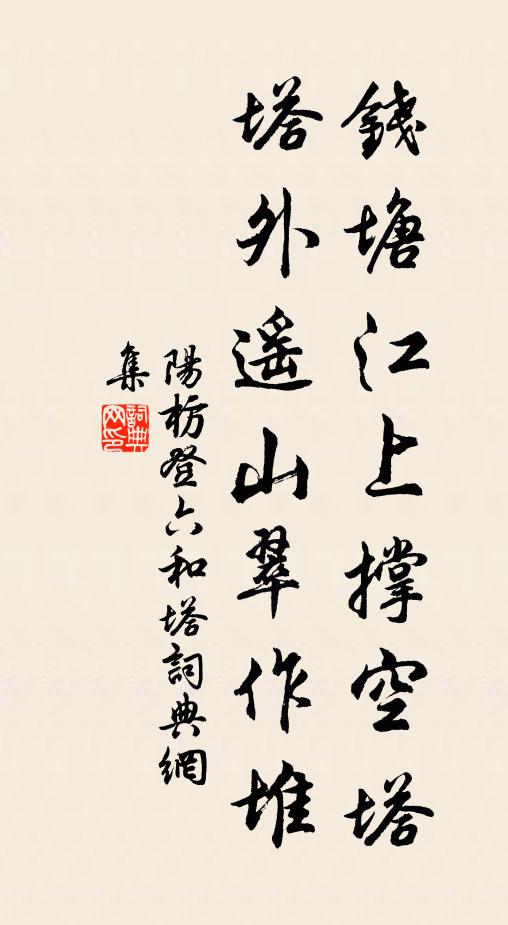 錢塘江上撐空塔
塔外遥山翠作堆
陽枋登六和塔詞典網
集
詞典
网印